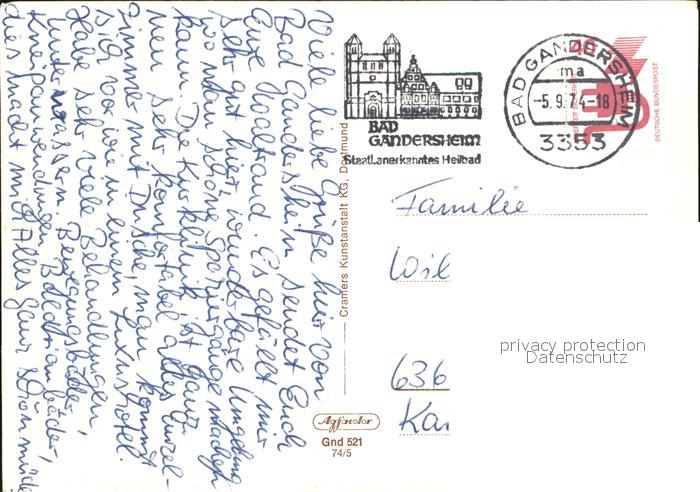 Viele liebe Grüße hier von
Bad Gandersheim sendet Euch
Eure Waltraud. Es gefällt mir
sehr gut hier, wunderbare Umgebung
wo man schöne Spaziergänge machen
kann. Die Kurklinik ist ganz
neu sehr komfortabel alles Einzel-
zimmer mit Dusche, man kommt
sich vor wie in einem Luxushotel.
Habe sehr viele Behandlungen,
Unterwassern. Bewegungsbäder,
Kneipanwendungen, Baldrianbäder,
dies macht mich Alles ganz schön müde
Cramers Kunstanstalt KG, Dortmund
Agfacolor
Gnd 521
74/5
BAD
GANDERSHEIM
Staatl. anerkanntes Heilbad
BAD GANDERSHEIM
ma
-5.9.74-18
3353
40
DEUTSCHE BUNDESPOST
Familie
Wil
636
Kar
privacy protection
Datenschutz